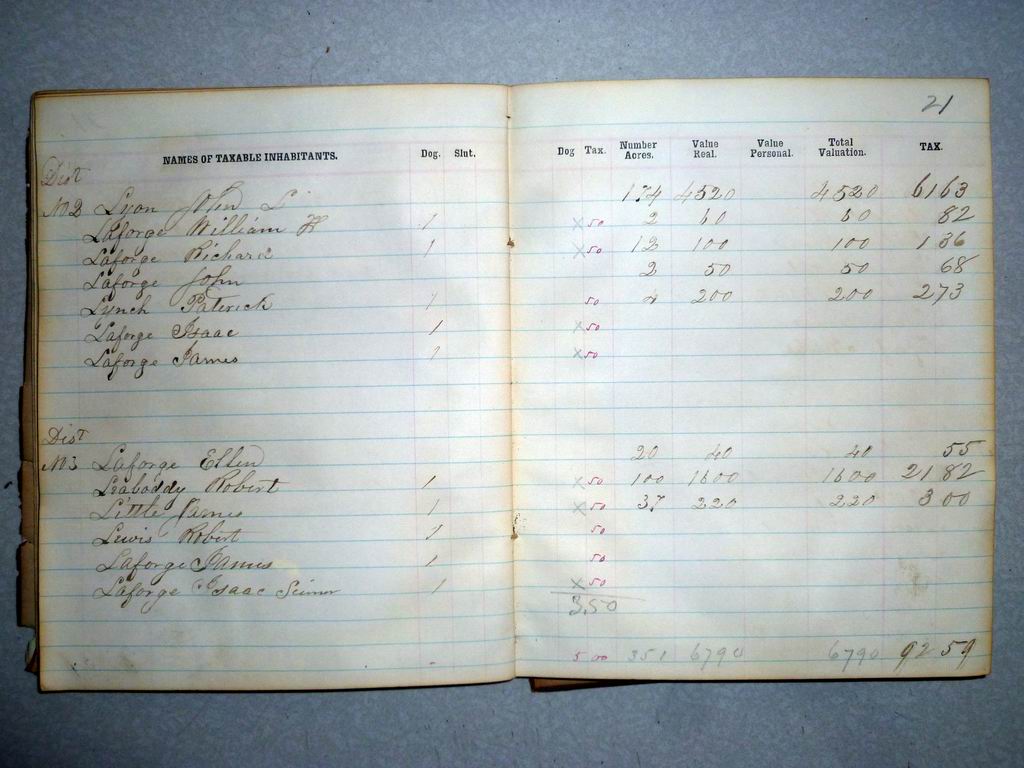 21
NAMES OF TAXABLE INHABITANTS. Dog. Slut. Dog Tax. Number Acres. Value Real. Value Personal. Total Valuation. TAX.
Dist
No 2 Lyon John L 174 4520 4520 61 63
Laforge William H 1 x 50 2 60 60 82
Laforge Richard 1 x 50 12 100 100 1 36
Laforge John 2 50 50 68
Lynch Paterick 1 50 4 200 200 2 73
Laforge Isaac 1 x 50
Laforge James 1 x 50
Dist
No 3 Laforge Ellen 20 40 40 55
Leaboddy Robert 1 x 50 100 1600 1600 21 82
Little James 1 x 50 37 220 220 3 00
Lewis Robert 1 50
Laforge James 1 50
Laforge Isaac 1 x 50
3,50
5 00 351 6790 6790 92 59